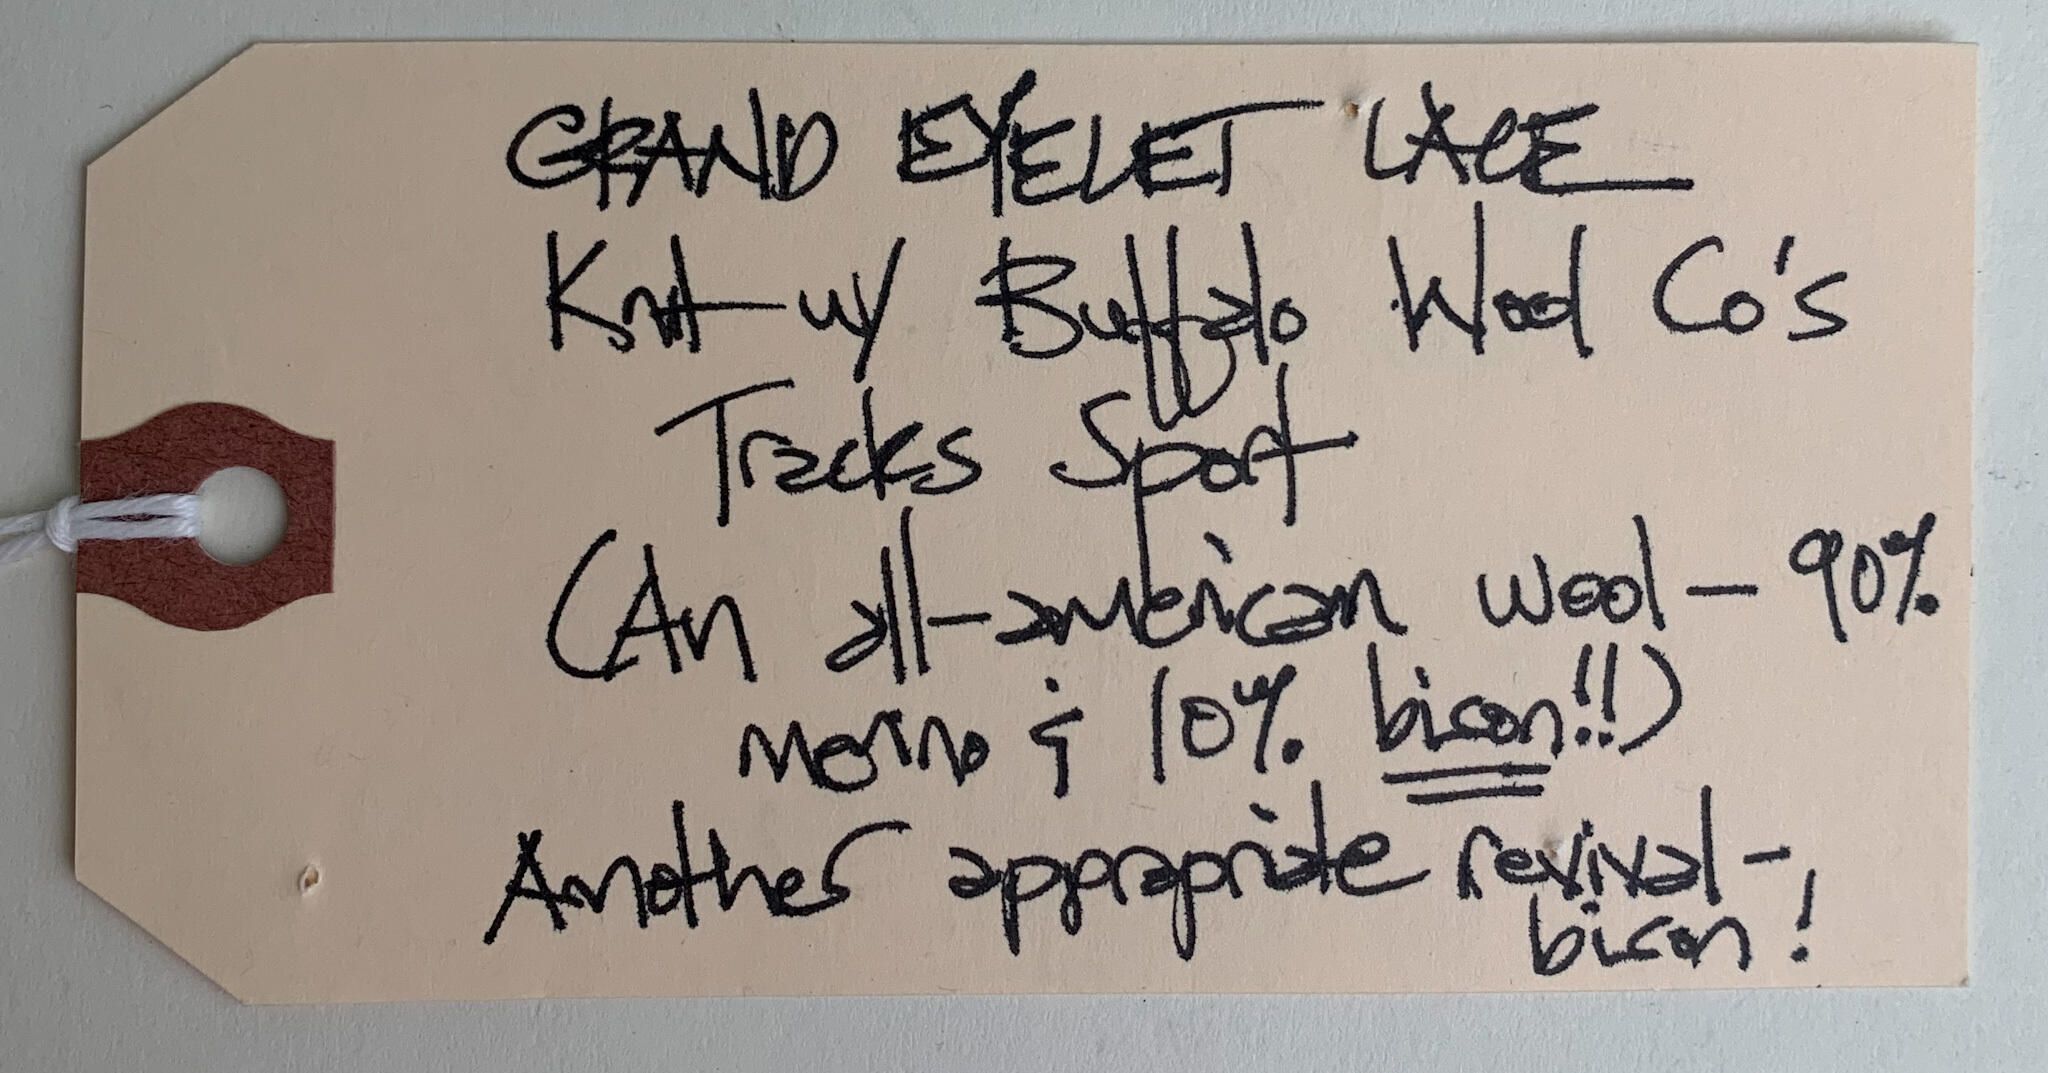 GRAND EYELET LACE
Knit w/ Buffalo Wool Co's
Tracks Sport
(An all-american wool - 90%
merino & 10% bison!!)
Another appropriate revival -
bison!